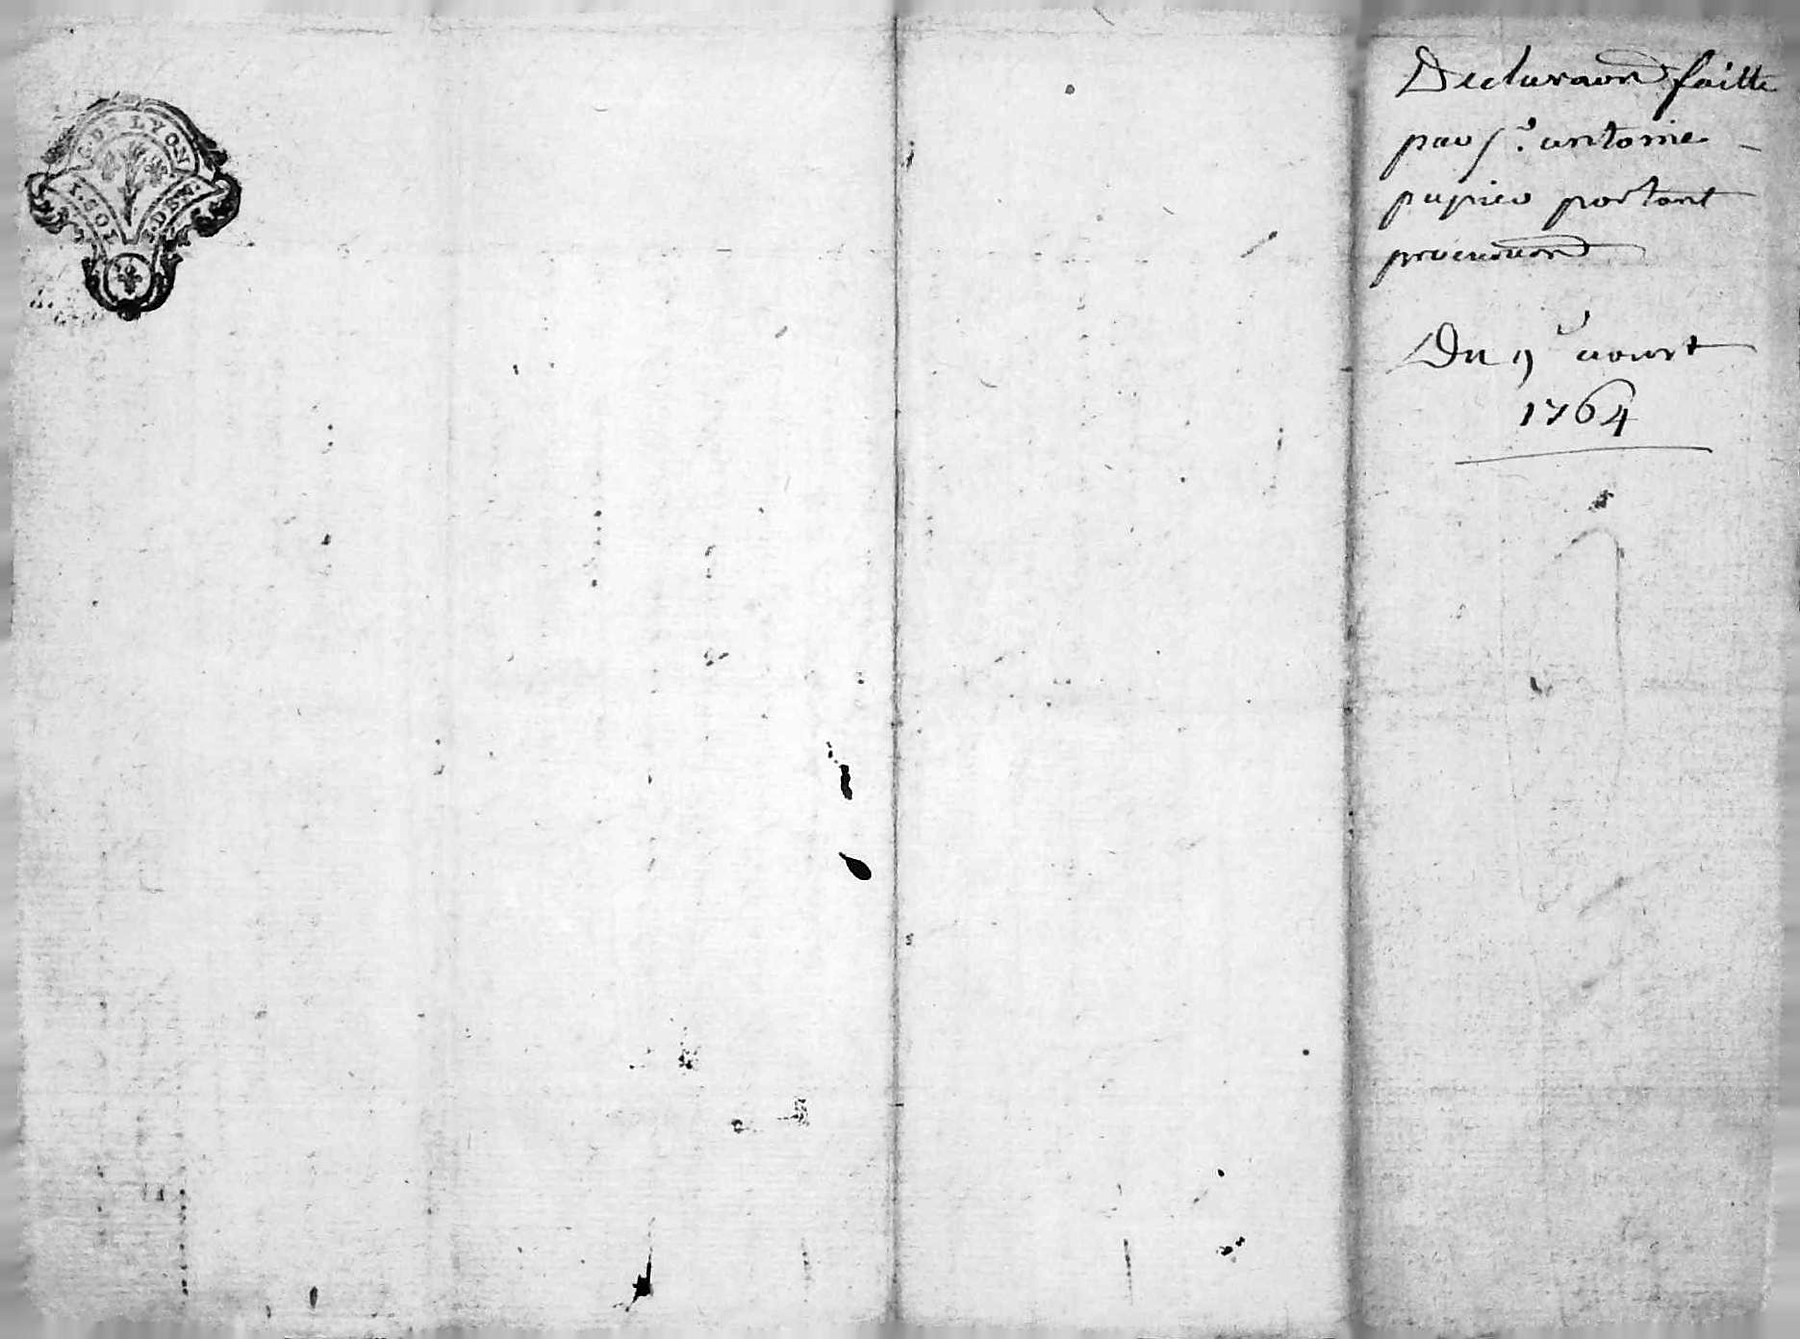 G. DE LYON
1. SOL
DEN.
Declaraon faitte
par Sr. antoine
papier portant
procuraon
Du 9e aoust
1764